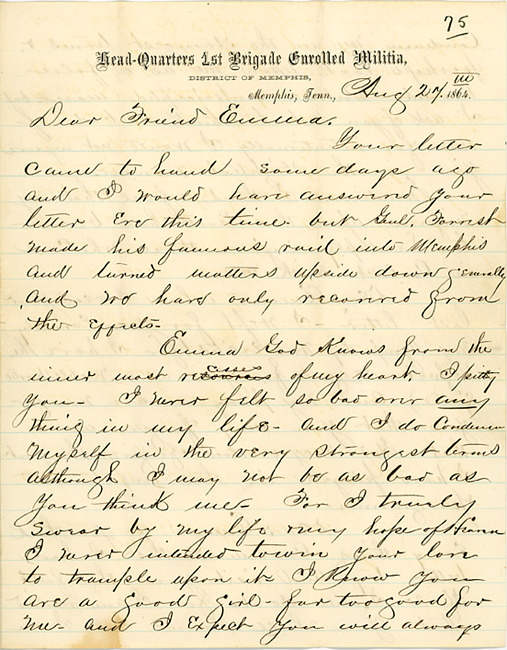 75
Head-Quarters 1st Brigade Enrolled Militia,
DISTRICT OF MEMPHIS,
Memphis, Tenn., Aug 27th 1864.
Dear Friend Emma.
Your letter
came to hand some days ago
and I would have answered your
letter Ere this time but Genl. Forrest
made his famous raid into Memphis
and turned matters upside down generally
and we have only recovered from
the effects-
Emma God Knows from the
inner most recesses of my heart, I pitty
You- I never felt so bad over any
thing in my life- and I do Condemn
myself in the very strongest terms
although I may not be as bad as
You think me- For I truely
Swear by my life & my hope of Heaven
I never intended to win your love
to trample upon it I Know You
are a good girl- far too good for
me- and I Expect You will always